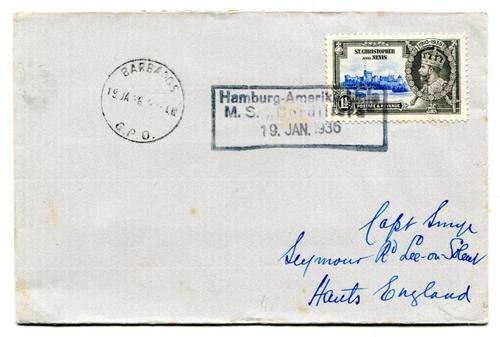 BARBADOS
19 JA 36
G.P.O.
ST. CHRISTOPHER
AND NEVIS
1910-1935
1½
POSTAGE & REVENUE
Hamburg-Amerika
M. S. „Cordillera
19. JAN. 1936
Capt Smyr
Seymour Rd Lee-on-Solent
Hants England